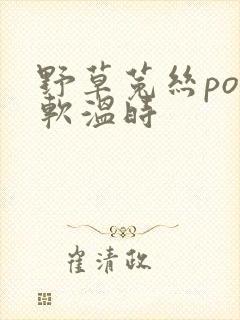 野草菟丝po
软温时
崔清政